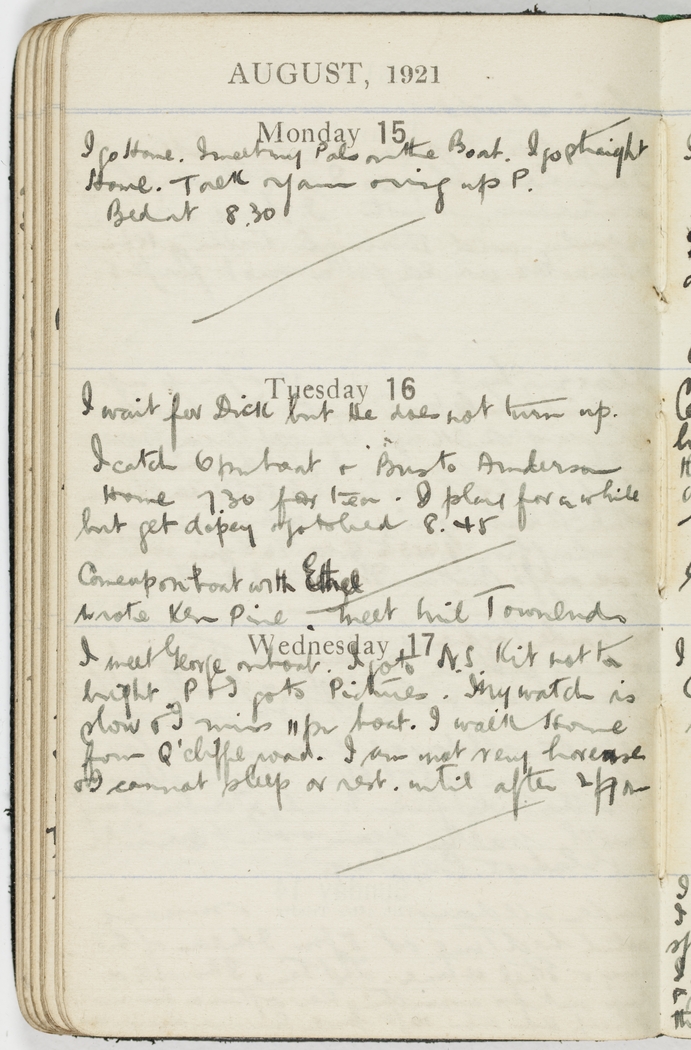 AUGUST, 1921
Monday 15
I go Home. I meet my Pals on the Boat. I go straight
Home. Talk up P.
Bed at 8.30
Tuesday 16
I wait for Dick but He does not turn up.
I catch 6pm boat & Bus to Anderson
Home 7.30 for tea. I play for a while
but get & go to bed 8.45
Come up on boat with Ethel
wrote Ken Pine - meet Townends
Wednesday 17
I meet George on boat. I go to N.S. Kit not to
bright P & I go to Pictures. My watch is
slow & I miss 11pm boat. I walk Home
from Q'cliffe road. I am not very
& I cannot sleep or rest. until after